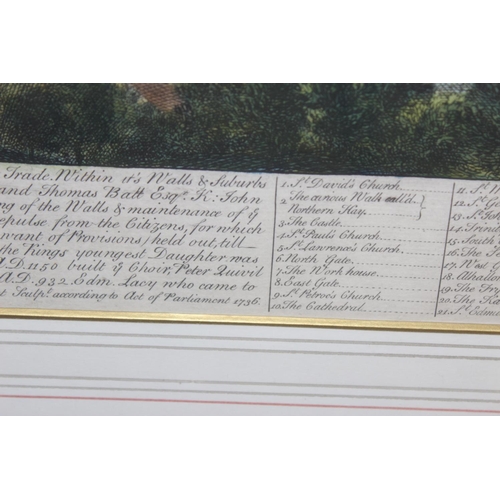 Trade. Within it's Walls & Suburbs
and Thomas Balt Esqr. K: John
ng of the Walls & maintenance of ye
epulse from the Citizens, for which
want of Provisions held out, till
the Kings youngest Daughter was
A.D. 1150 built ye Choir, Peter Quivil
A.D. 932. Edm. Lacy who came to
t Sculp. according to Act of Parliament 1736.
1. St. David's Church
2. The curious Walk call'd
Northern Hay.
3. The Castle
4. St. Paul's Church
5. St. Lawrence's Church
6. North Gate.
7. The Work house
8. East Gate.
9. St. Petroc's Church
10. The Cathedral
11. St.
12. St.
13. St.
14. Trinit
15. South
16. The
17. West
18. Alhallow
19. The Fry
20. The
21. St. Edm